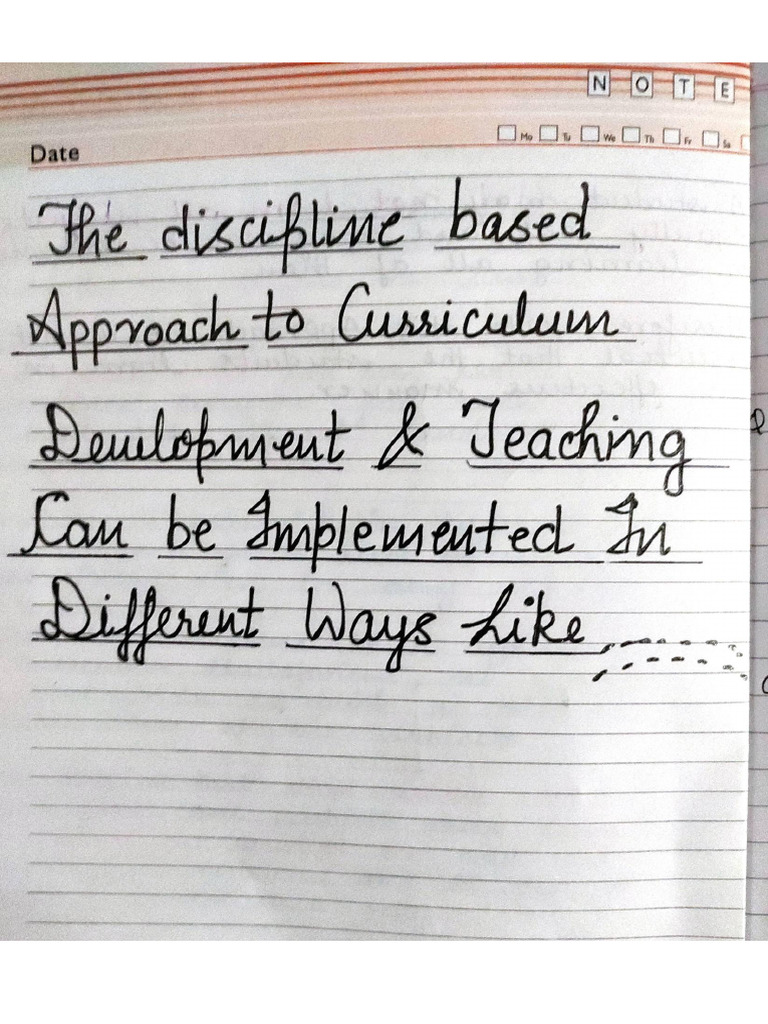 N O T E
Mo Tu We Th Fr Sa
Date
The discipline based
Approach to Curriculum
Development & Teaching
Can be Implemented In
Different Ways Like